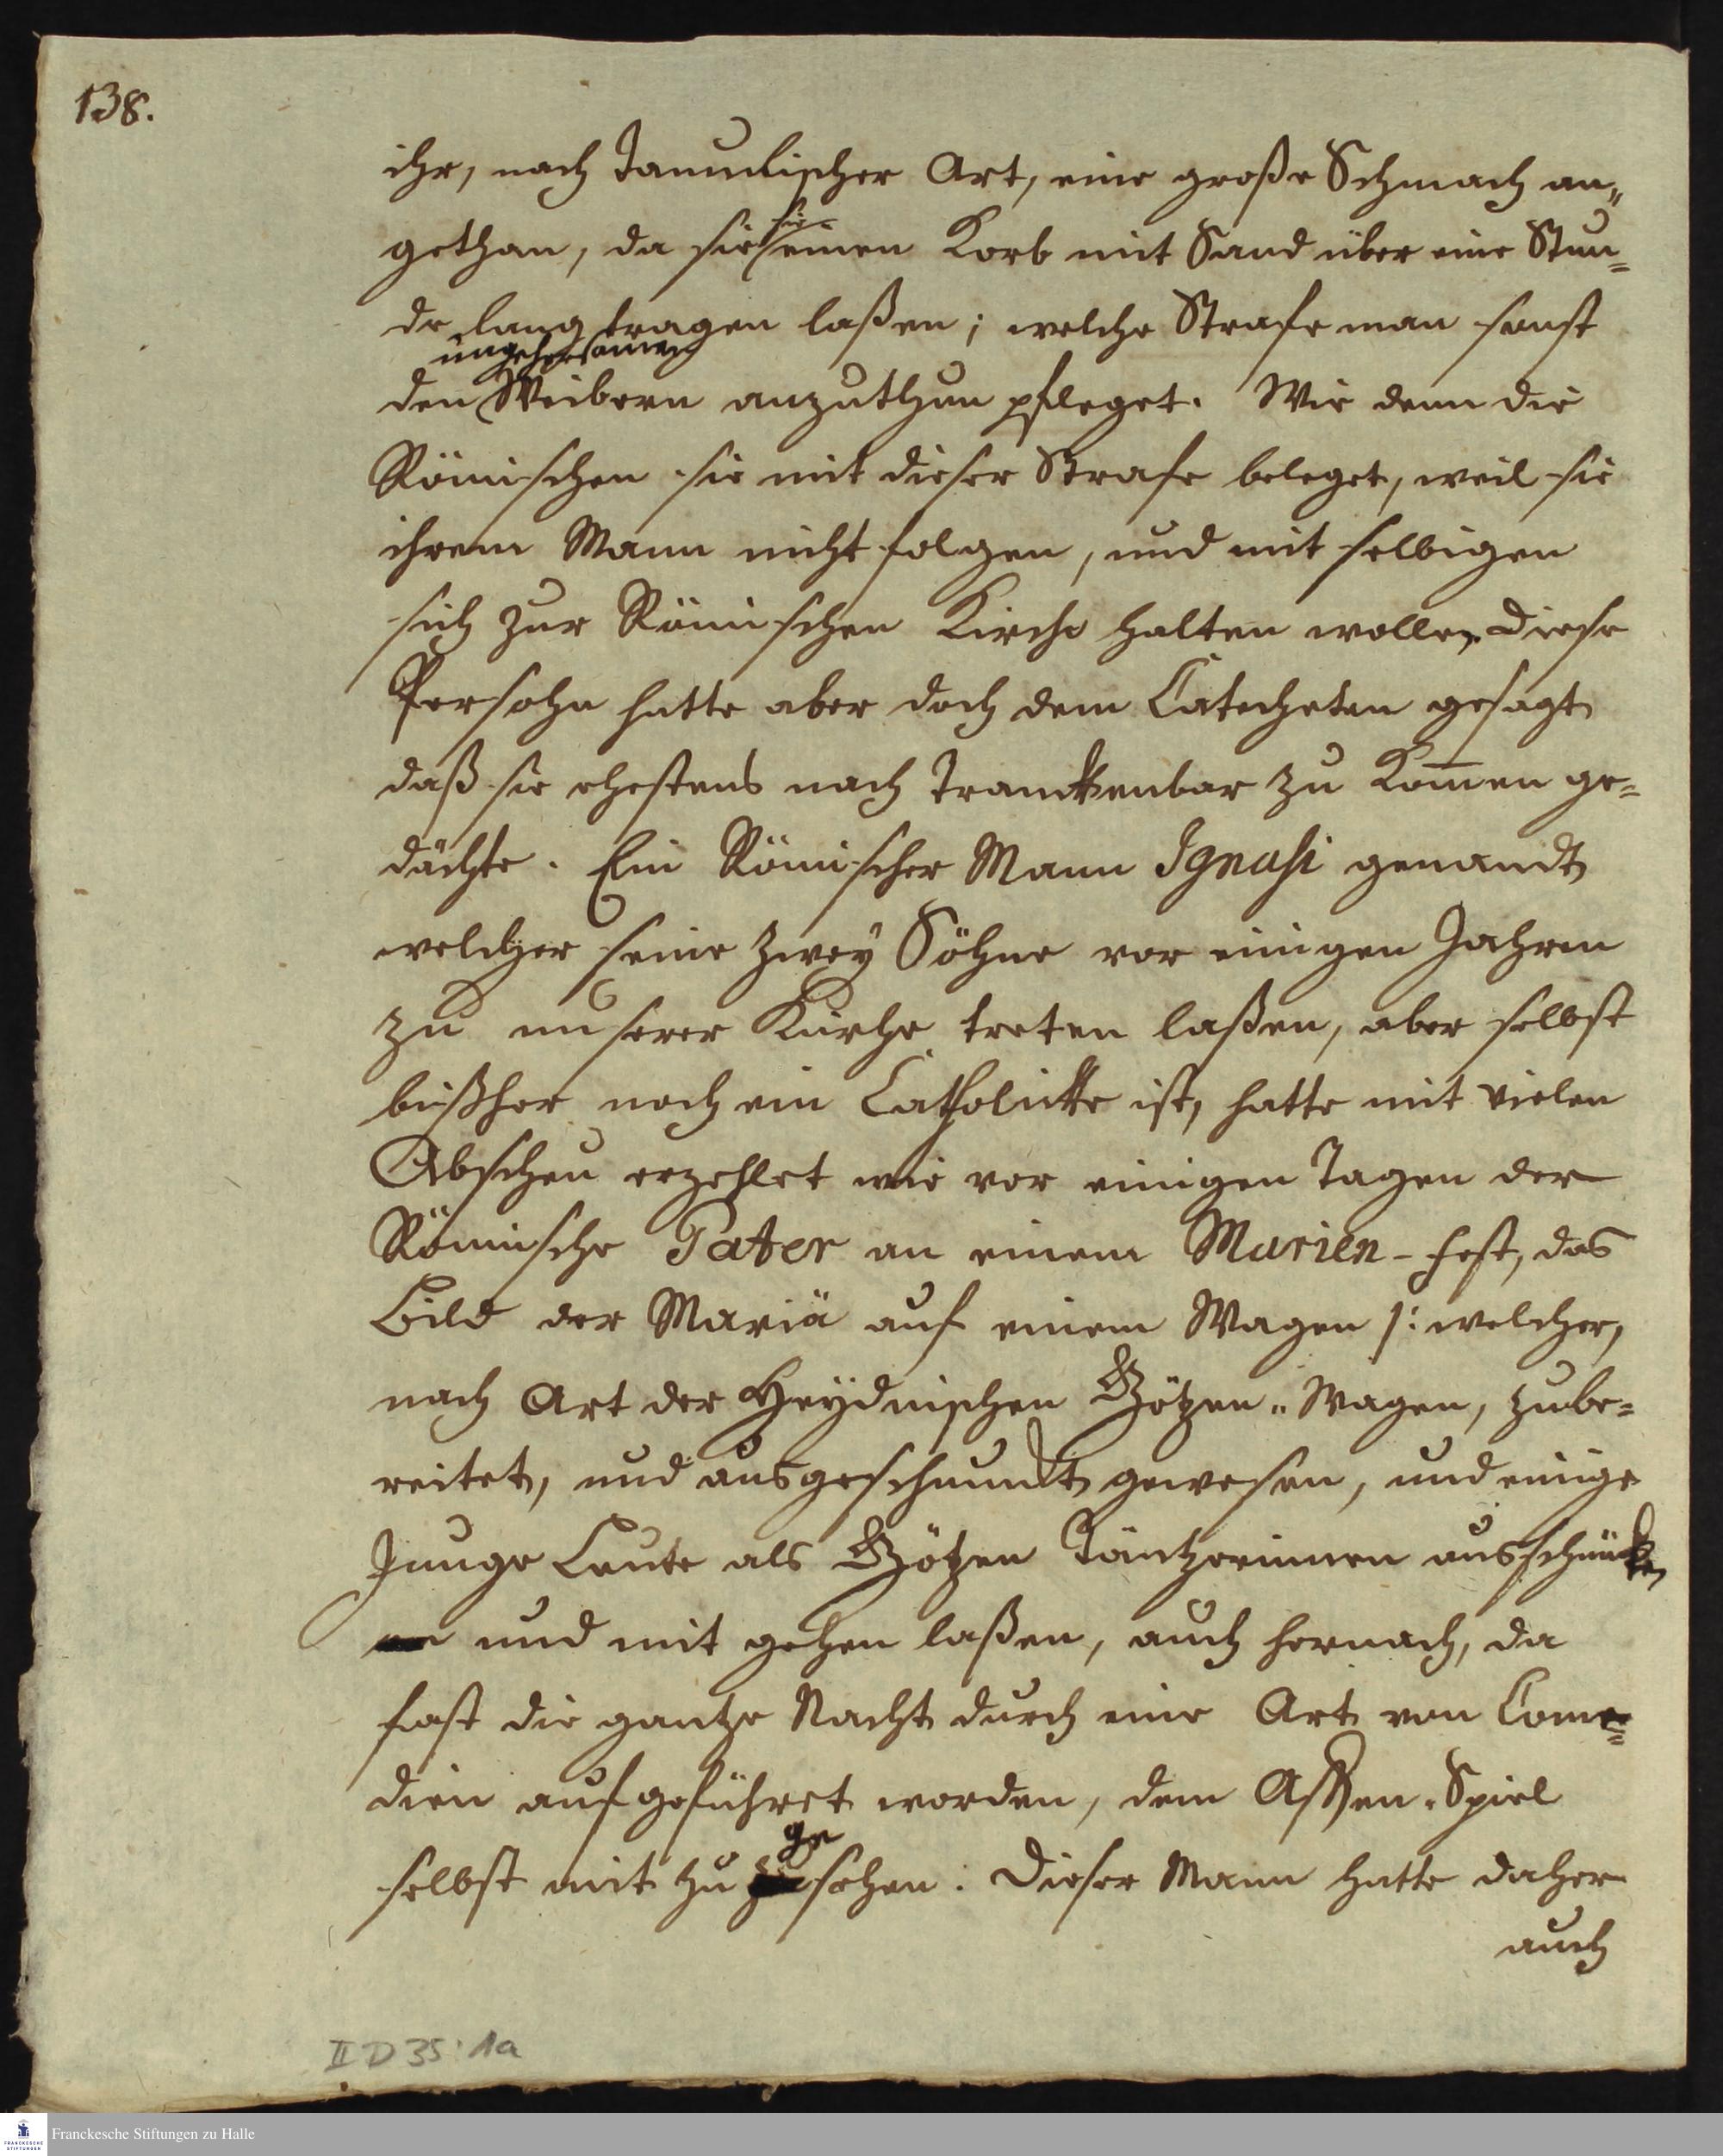 138.
ihr, nach Tamulischer Art, eine große Schmach an„
gethan, da sie sie einen Korb mit Sand über eine Stun=
de lang tragen laßen; welche Strafe man sonst
ungehorsamen
den Weibern anzuthun pfleget. Wie denn die
Römischen sie mit dieser Strafe beleget, weil sie
ihrem Mann nicht folgen, und mit selbigen
sich zur Römischen Kirche halten wollen. Diese
Persohn hatte aber doch dem Catecheten gesagt
daß sie ehestens nach Tranckenbar zu kom̄en ge=
dächte. Ein Römischer Mann Ignasi genandt
welcher seine zwey Söhne vor einigen Jahren
zu unserer Kirche treten laßen, aber selbst
bißher noch ein Catholicke ist, hatte mit vielen
Abscheu erzehlet wie vor einigen Tagen der
Römische Pater an einem Marien-Fest, das
Bild der Mariä auf einem Wagen /: welcher,
nach Art der Heydnischen Götzen„Wagen, zube=
reitet, und ausgeschmückt gewesen, und einige
Junge Leute als Götzen Täntzerinnen ausschmücken
und mit gehen laßen, auch hernach, da
fast die gantze Nacht durch eine Art von Come=
dien aufgeführet worden, dem Affen-Spiel
selbst mit zu gesehen. Dieser Mann hatte daher
auch
II D 35:1a
Franckesche Stiftungen zu Halle
FRANCKESCHE
STIFTUNGEN